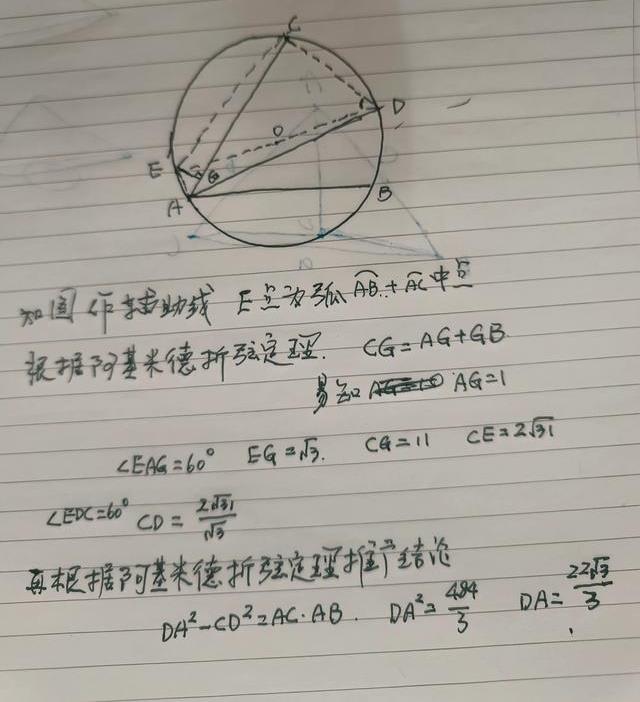 C
D
O
E
G
A
B
如图作辅助线 E点为弧AB+AC中点
根据阿基米德折弦定理. CG=AG+GB
易知 AG=1
∠EAG=60° EG=√3. CG=11 CE=2√31
∠EDC=60° CD=2√31/√3
再根据阿基米德折弦定理推广结论
DA²-CD²=AC·AB. DA²=484/3 DA=22√3/3.